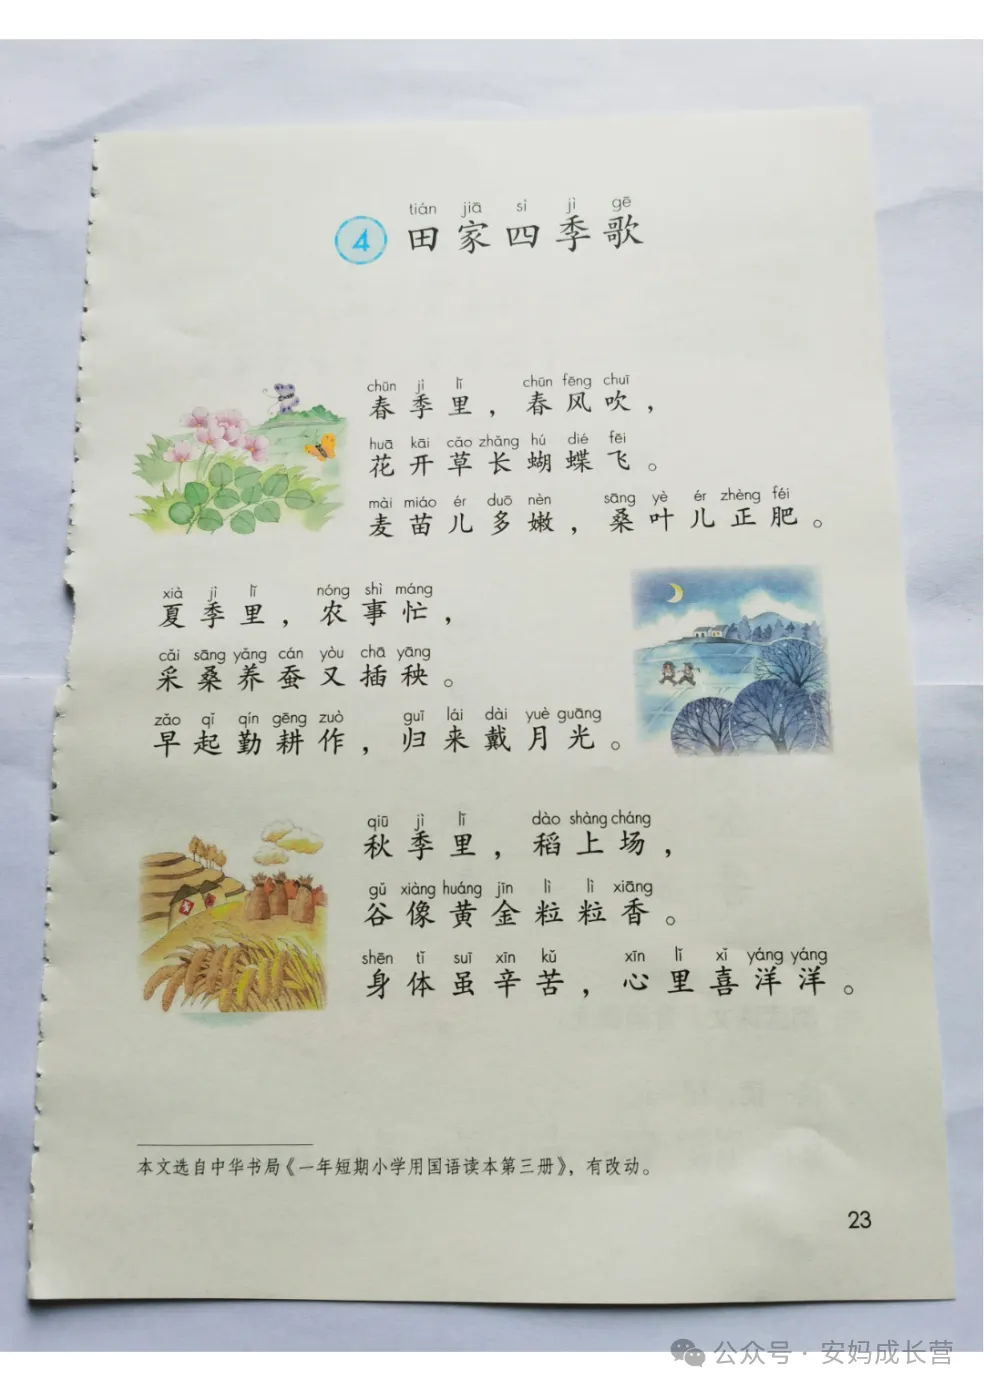 tián jiā sì jì gē
4 田家四季歌
chūn jì lǐ chūn fēng chuī
春季里，春风吹，
huā kāi cǎo zhǎng hú dié fēi
花开草长蝴蝶飞。
mài miáo ér duō nèn sāng yè ér zhèng féi
麦苗儿多嫩，桑叶儿正肥。
xià jì lǐ nóng shì máng
夏季里，农事忙，
cǎi sāng yǎng cán yòu chā yāng
采桑养蚕又插秧。
zǎo qǐ qín gēng zuò guī lái dài yuè guāng
早起勤耕作，归来戴月光。
qiū jì lǐ dào shàng cháng
秋季里，稻上场，
gǔ xiàng huáng jīn lì lì xiāng
谷像黄金粒粒香。
shēn tǐ suī xīn kǔ xīn lǐ xǐ yáng yáng
身体虽辛苦，心里喜洋洋。
本文选自中华书局《一年短期小学用国语读本第三册》，有改动。
23
公众号·安妈成长营